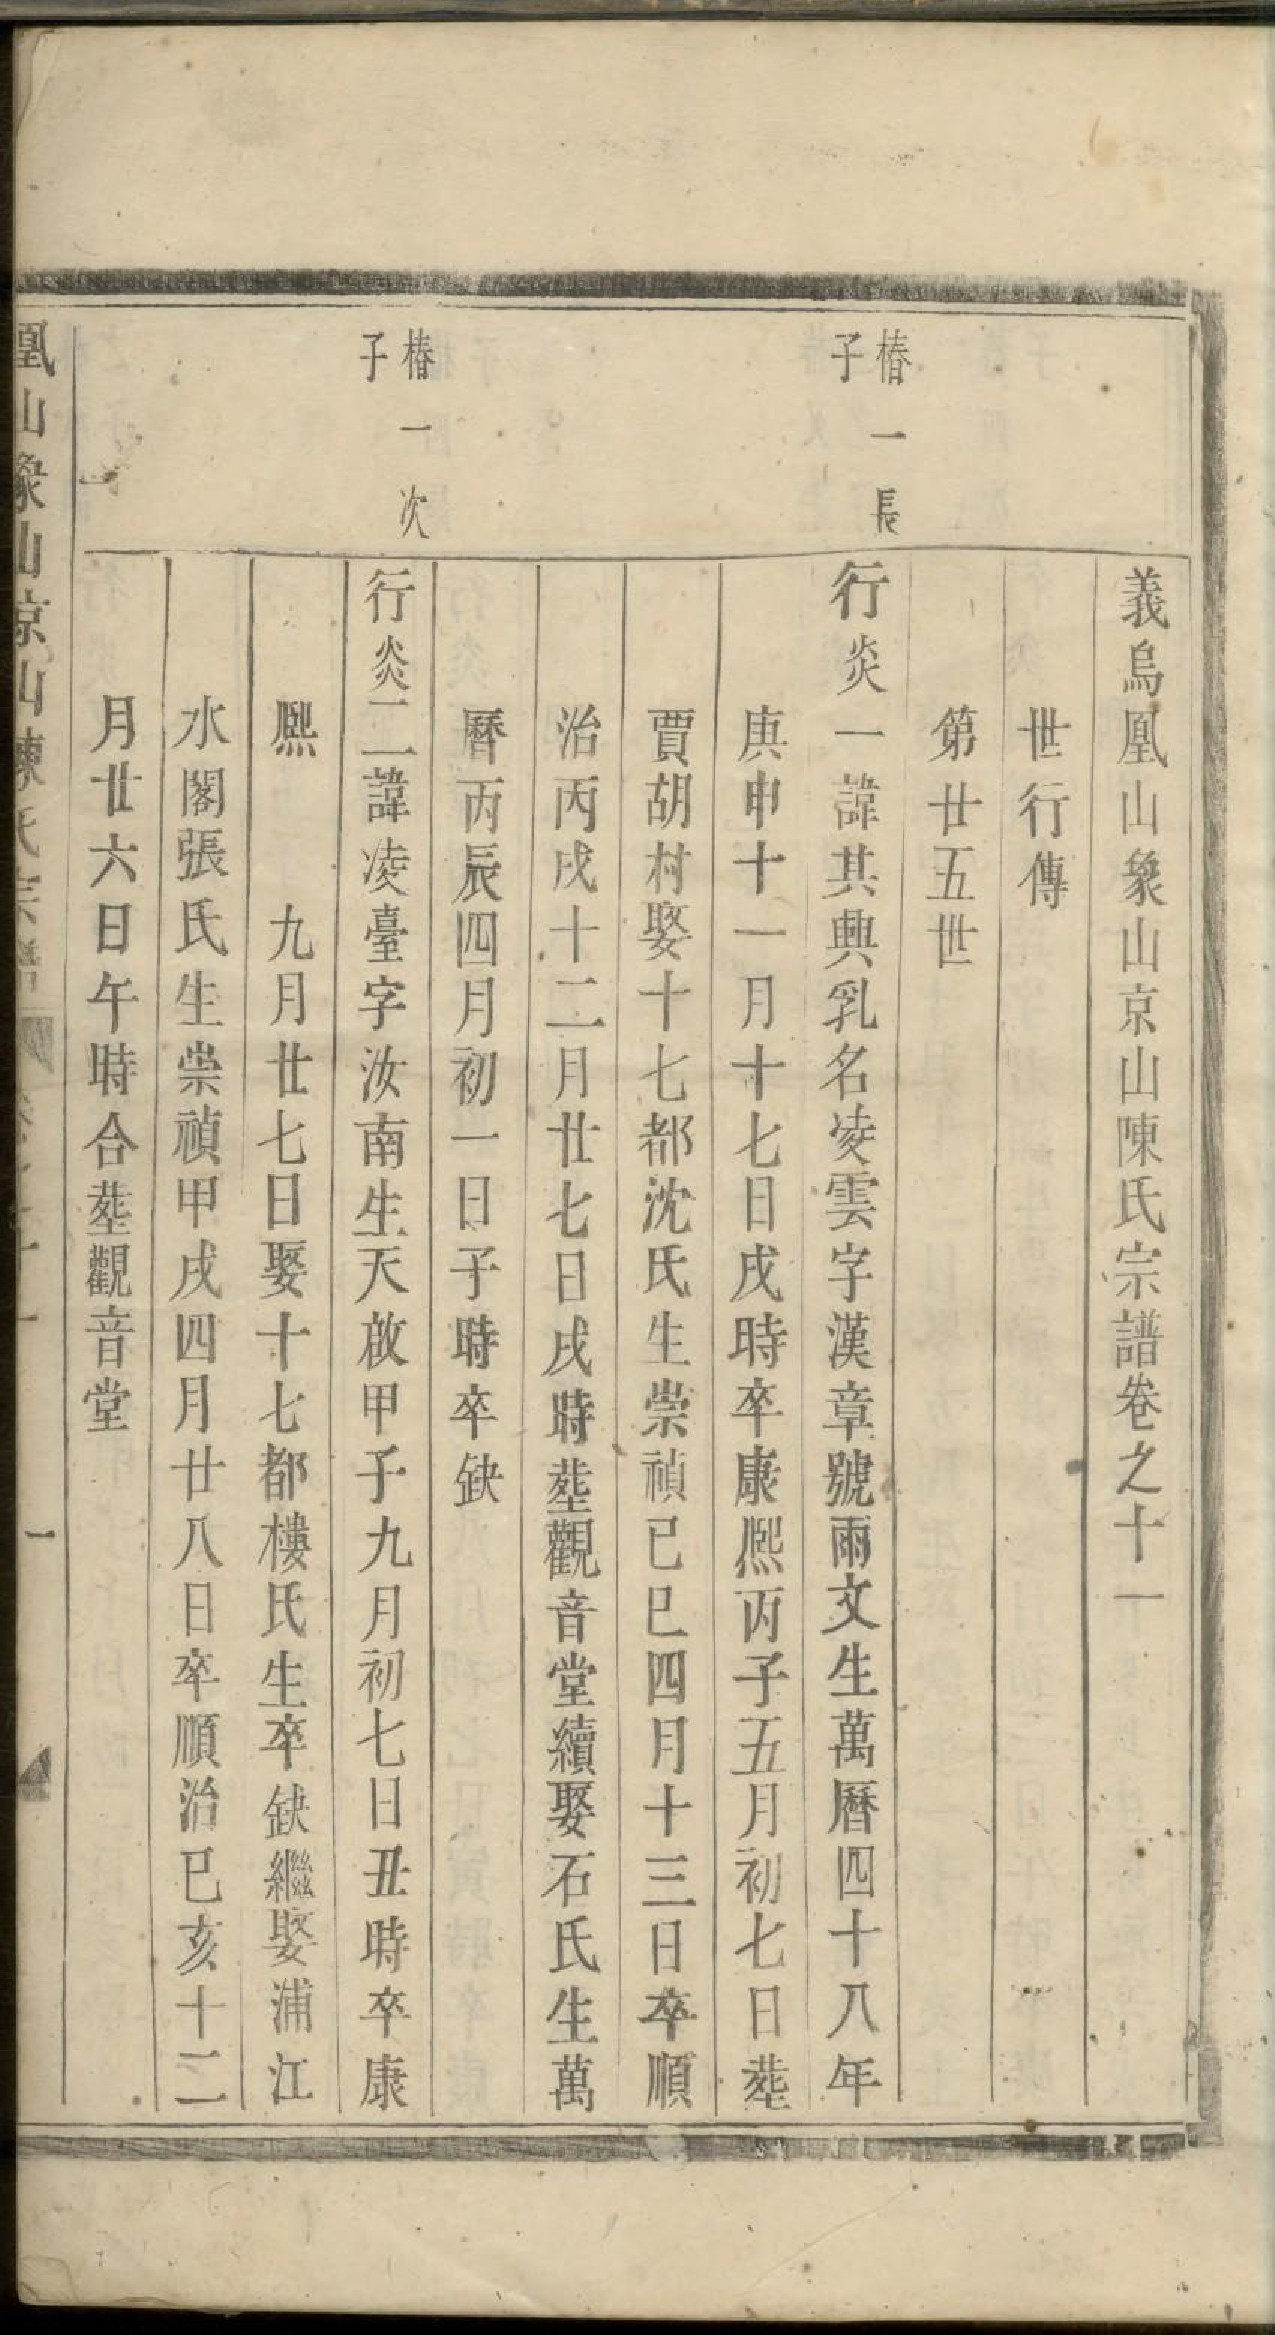 義烏凰山象山京山陳氏宗譜卷之十一
世行傳
第廿五世
椿一長
子
行炎一諱其興乳名凌雲字漢章號雨文生萬曆四十八年
庚申十一月十七日戌時卒康熙丙子五月初七日塟
賈胡村娶十七都沈氏生崇禎已巳四月十三日卒順
治丙戌十二月廿七日戌時塟觀音堂續娶石氏生萬
曆丙辰四月初一日子時卒缺
椿一次
子
行炎二諱凌臺字汝南生天啟甲子九月初七日丑時卒康
熙　　九月廿七日娶十七都樓氏生卒缺繼娶浦江
水閣張氏生崇禎甲戌四月廿八日卒順治已亥十二
月廿六日午時合塟觀音堂
凰山象山京山陳氏宗譜
一